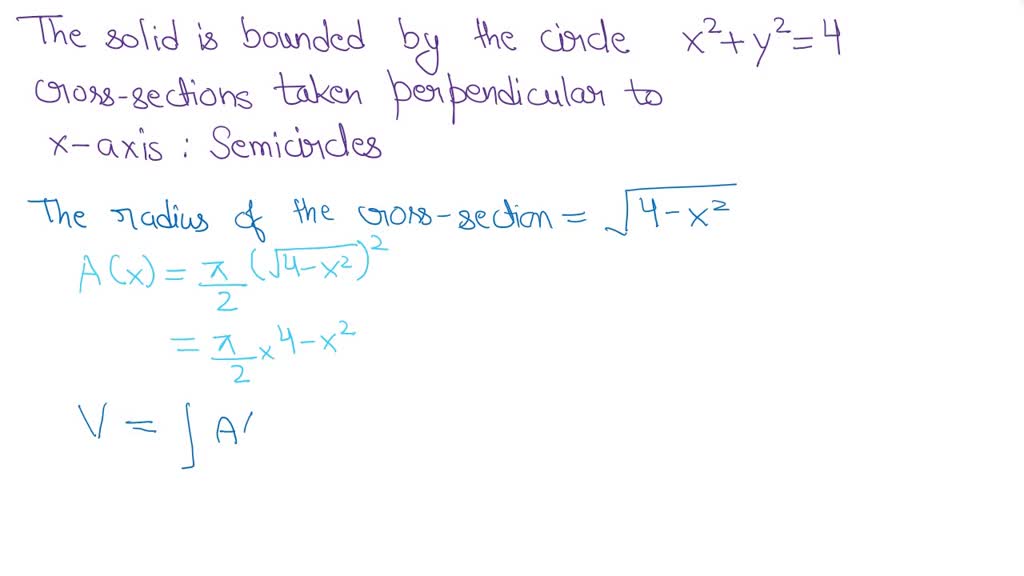 The solid is bounded by the circle x²+y²=4
cross-sections taken perpendicular to
x-axis : Semicircles
The radius of the cross-section = √(4-x²)
A(x) = π/2 (√(4-x²))²
= π/2 x 4-x²
V = ∫ A(